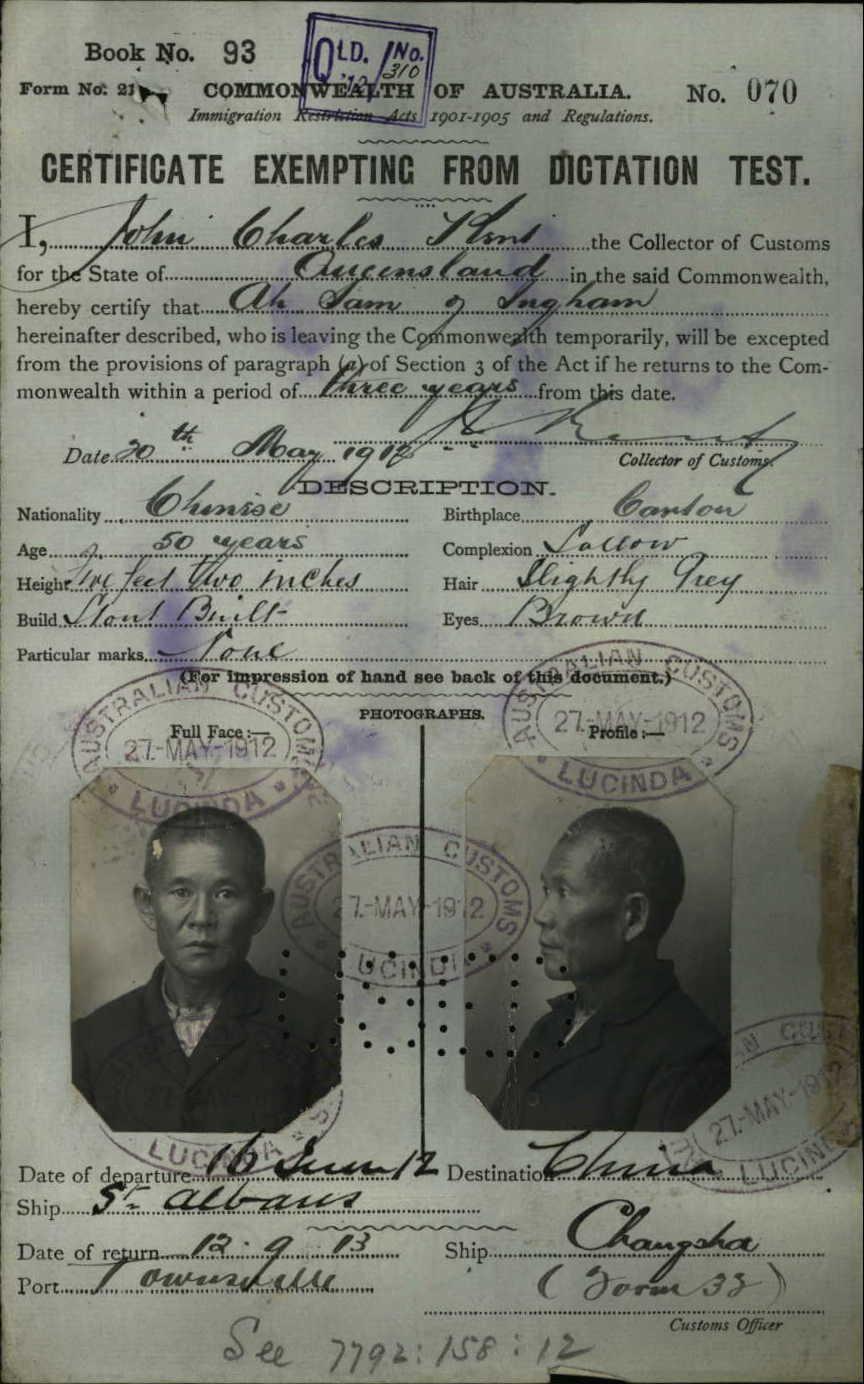 Book No. 93
QLD. No.
12/310
Form No. 21
COMMONWEALTH OF AUSTRALIA. No. 070
Immigration Restriction Acts 1901-1905 and Regulations.
CERTIFICATE EXEMPTING FROM DICTATION TEST.
I, John Charles Kent the Collector of Customs
for the State of Queensland in the said Commonwealth,
hereby certify that Ah Sam of Ingham
hereinafter described, who is leaving the Commonwealth temporarily, will be excepted
from the provisions of paragraph (a) of Section 3 of the Act if he returns to the Com-
monwealth within a period of three years from this date.
Date 20th May 1912
Collector of Customs.
DESCRIPTION.
Nationality Chinese Birthplace Canton
Age 50 years Complexion Sallow
Height Five feet two inches Hair Slightly Grey
Build Stout Built Eyes Brown
Particular marks None
(For impression of hand see back of this document.)
PHOTOGRAPHS.
Full Face :— Profile :—
AUSTRALIAN CUSTOMS
27-MAY-1912
LUCINDA
AUSTRALIAN CUSTOMS
27-MAY-1912
LUCINDA
AUSTRALIAN CUSTOMS
27-MAY-1912
LUCINDA
27-MAY-1912
LUCINDA
LUCINDA
Date of departure 16 June 12 Destination China
Ship St Albans
Date of return 12.9.13 Ship Changsha
Port Townsville (Form 32)
Customs Officer
See 7792:158:12